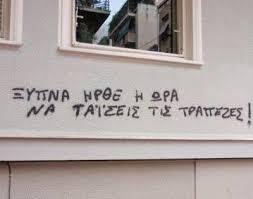 ΞΥΠΝΑ ΗΡΘΕ Η ΩΡΑ
ΝΑ ΤΑΪΣΕΙΣ ΤΙΣ ΤΡΑΠΕΖΕΣ!